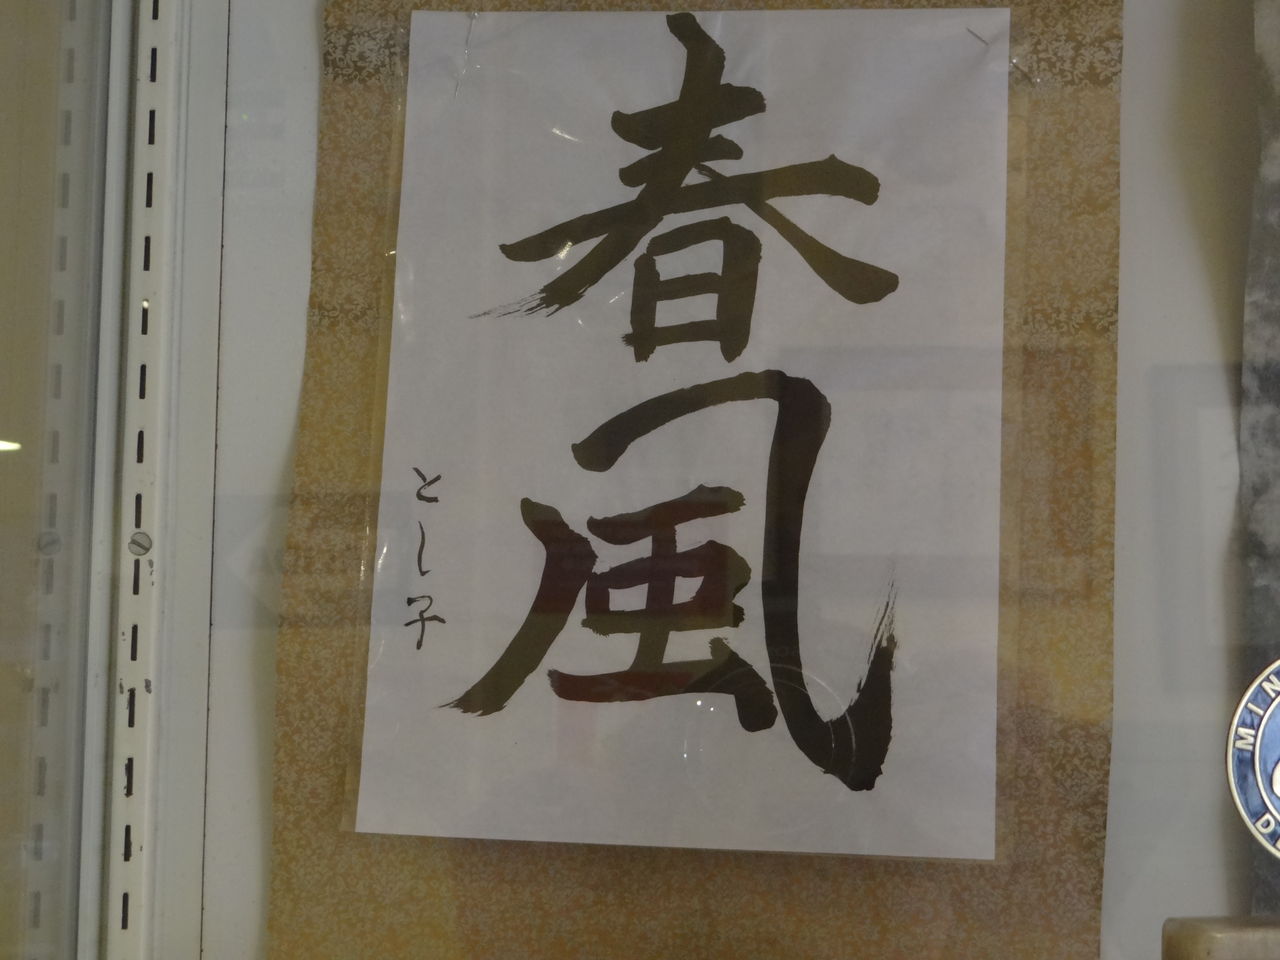 春風
とし子
MIN
D